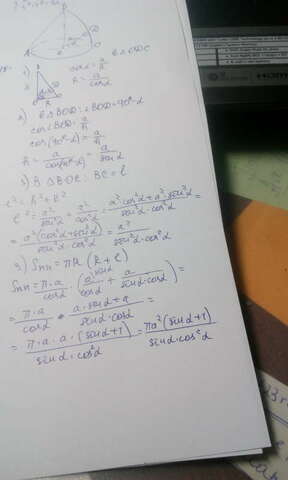 В Δ ODC
1) cos α = a/R
R = a/cos α
2) В Δ BOD: ∠BOD = 90° - α
cos ∠BOD = a/h
cos(90° - α) = a/h
h = a/cos(90°-α) = a/sin α
3) В Δ BOC: BC = l
l² = h² + R²
l² = a²/sin²α + a²/cos²α = (a² cos²α + a² sin²α)/(sin²α · cos²α) =
= a²(cos²α + sin²α)/(sin²α · cos²α) = a²/(sin²α · cos²α)
3) Sпп = πR (R + l)
Sпп = π·a/cos α · (a/cos α + a/(sin α · cos α)) =
= π·a/cos α · (a · sin α + a)/(sin α · cos α) =
= π·a·a (sin α + 1)/(sin α · cos²α) = πa² (sin α + 1)/(sin α · cos²α)